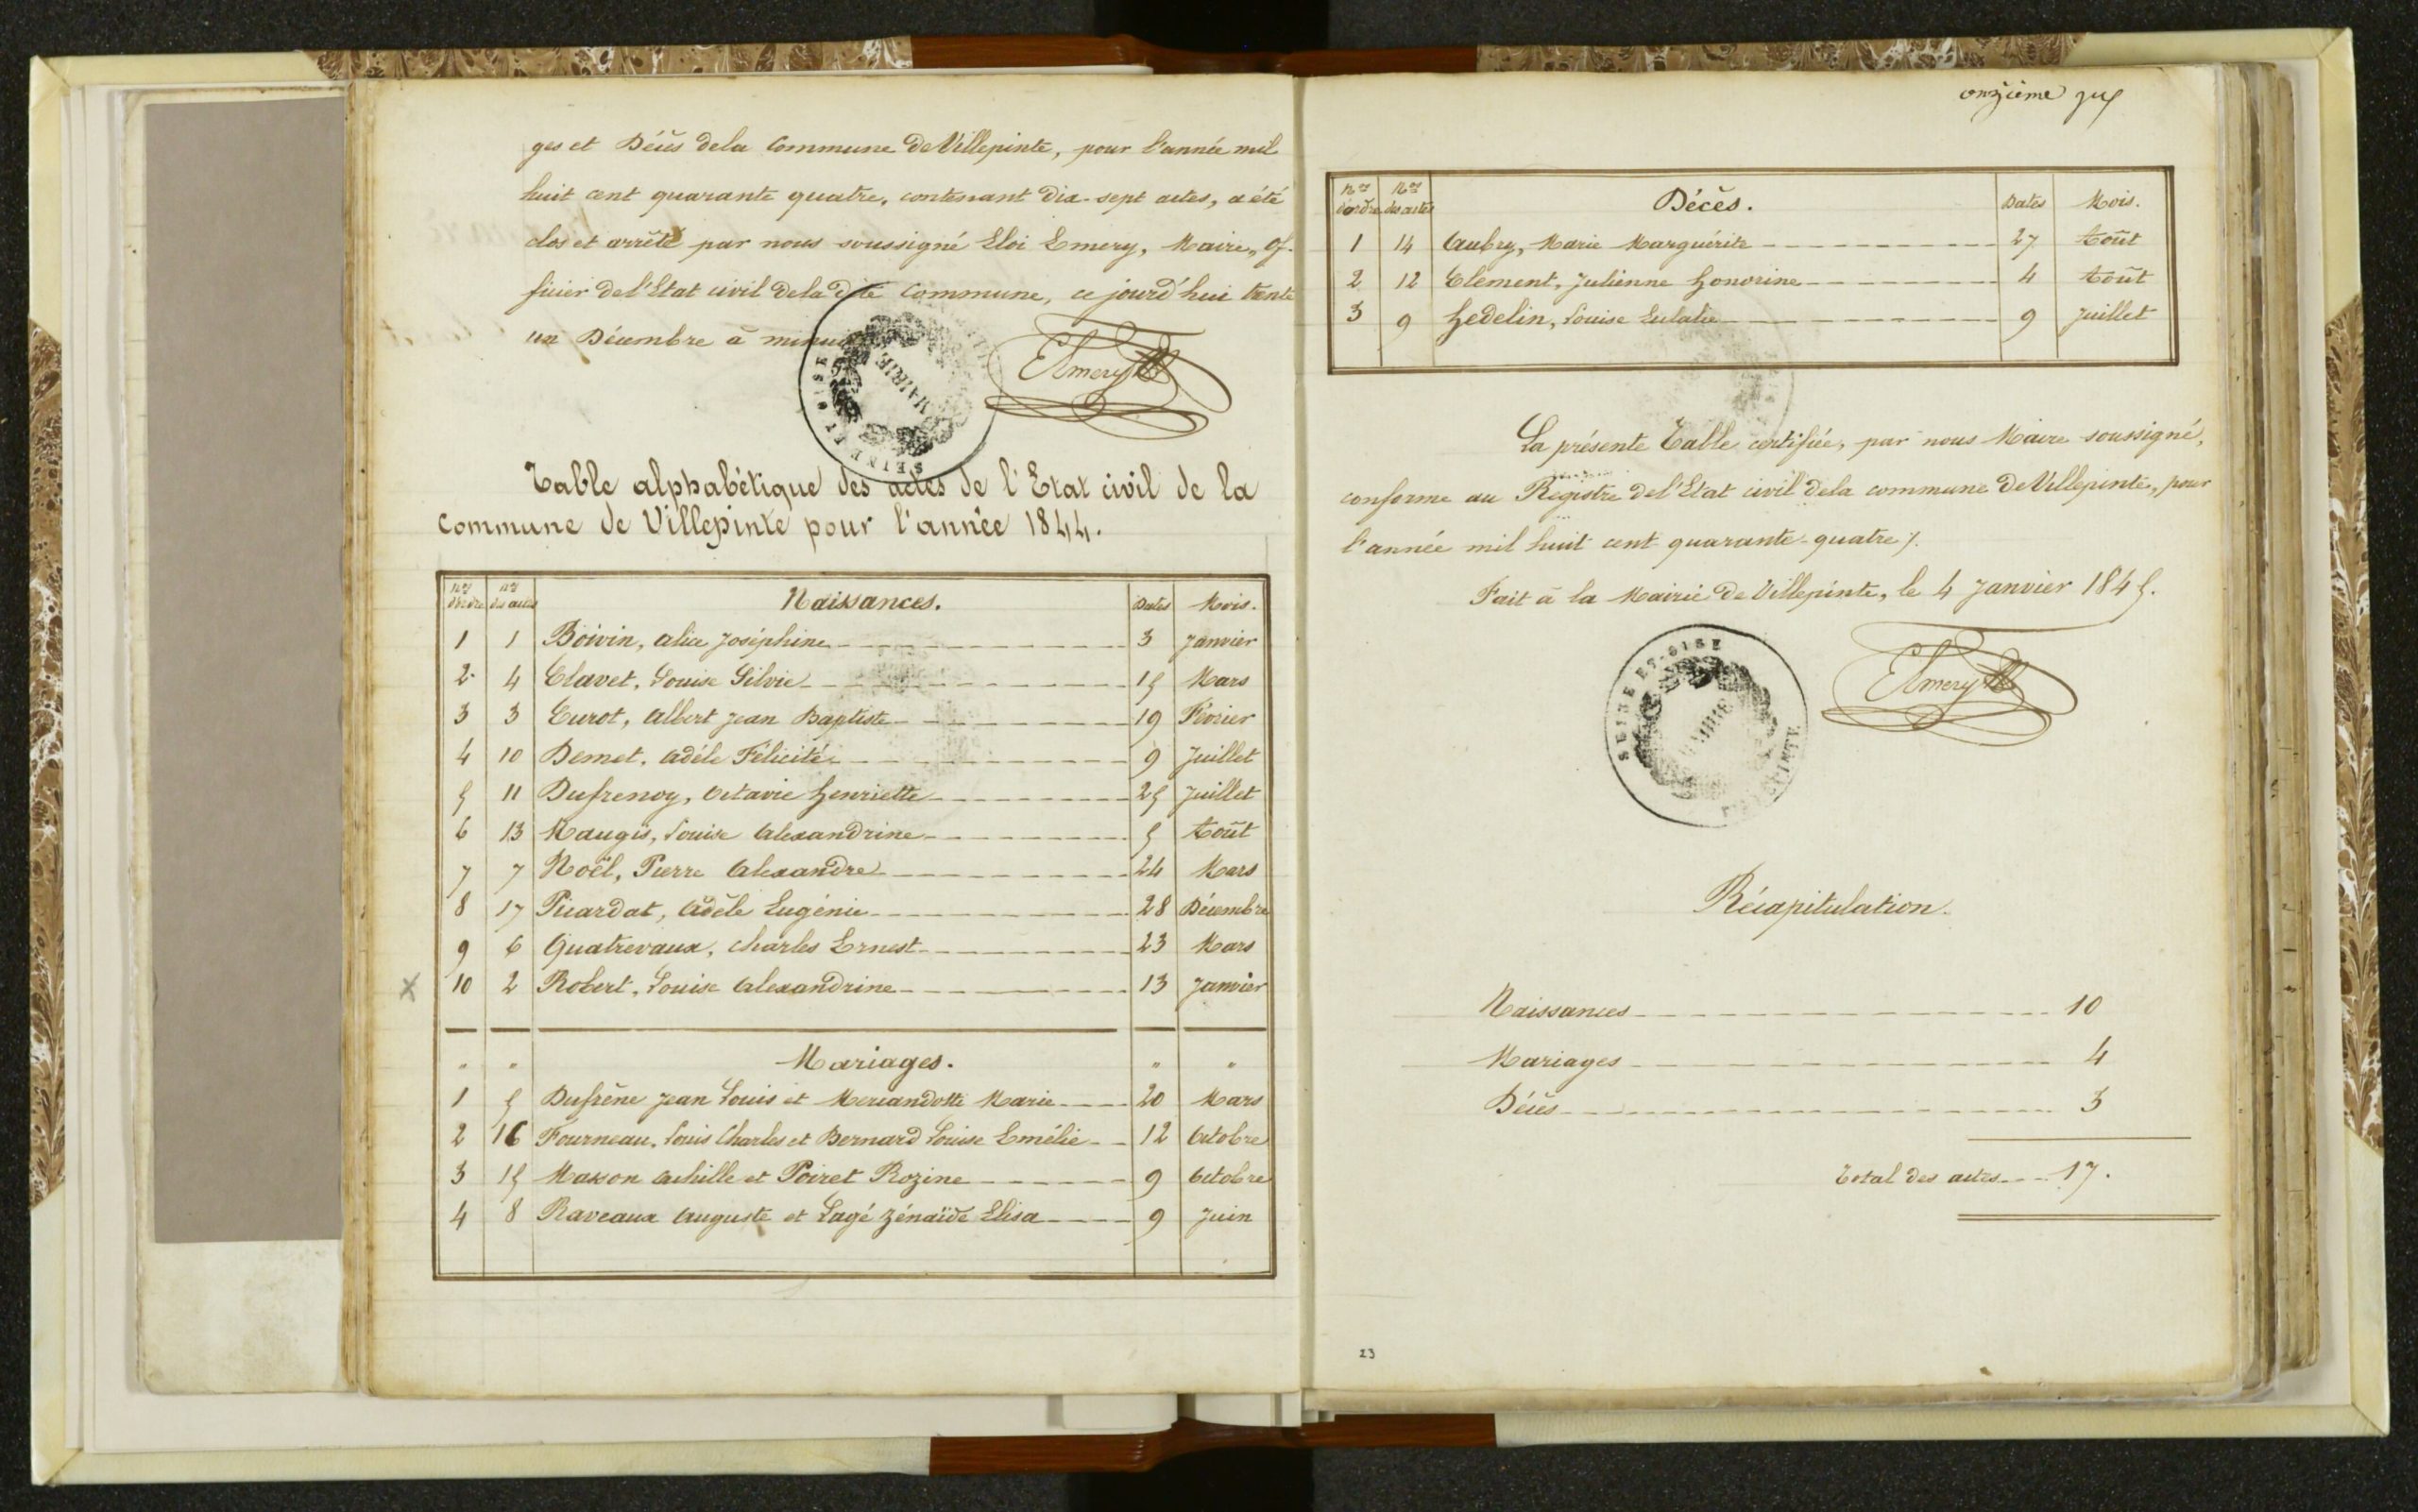 ges et Décès dela Commune de Villepinte, pour l'année mil
huit cent quarante quatre, contenant dix-sept actes, a été
clos et arrêté par nous soussigné Eloi Emery, Maire, Of-
ficier del'Etat civil dela dite Commune, ce jourd'hui trente
un Décembre à minuit
SEINE ET OISE
MAIRIE
Emery
Table alphabétique des actes de l'Etat civil de la
commune de Villepinte pour l'année 1844.
Nos d'ordre Nos des actes Naissances. Dates Mois.
1 1 Boivin, alice Joséphine 3 Janvier
2 4 Clavet, Louise Silvie 15 Mars
3 3 Curot, Albert Jean Baptiste 19 Février
4 10 Demet, Adéle Félicité 9 Juillet
5 11 Dufrenoy, Octavie Henriette 25 Juillet
6 13 Maugis, Louise Alexandrine 5 Août
7 7 Noël, Pierre Alexandre 24 Mars
8 17 Picardat, Adèle Eugénie 28 Décembre
9 6 Quatrevaux, Charles Ernest 23 Mars
10 2 Robert, Louise Alexandrine 13 Janvier
" " Mariages. " "
1 5 Dufrêne Jean Louis et Meriandotte Marie 20 Mars
2 16 Fourneau, Louis Charles et Bernard Louise Emélie 12 Octobre
3 15 Masson Achille et Poiret Rozine 9 Octobre
4 8 Raveaux Auguste et Lagé Zénaïde Elisa 9 Juin
onzième
Nos d'ordre Nos des actes Décès. Dates Mois.
1 14 Aubry, Marie Marguérite 27 Août
2 12 Clement, Julienne Honorine 4 Août
3 9 Hedelin, Louise Eulalie 9 Juillet
La présente Table certifiée, par nous Maire soussigné,
conforme au Registre del'Etat civil dela commune de Villepinte, pour
l'année mil huit cent quarante-quatre ./.
Fait à la Mairie de Villepinte, le 4 Janvier 1845.
SEINE ET-OISE
MAIRIE
VILLEPINTE
Emery
Récapitulation.
Naissances 10
Mariages 4
Décès 3
Total des actes 17.
23